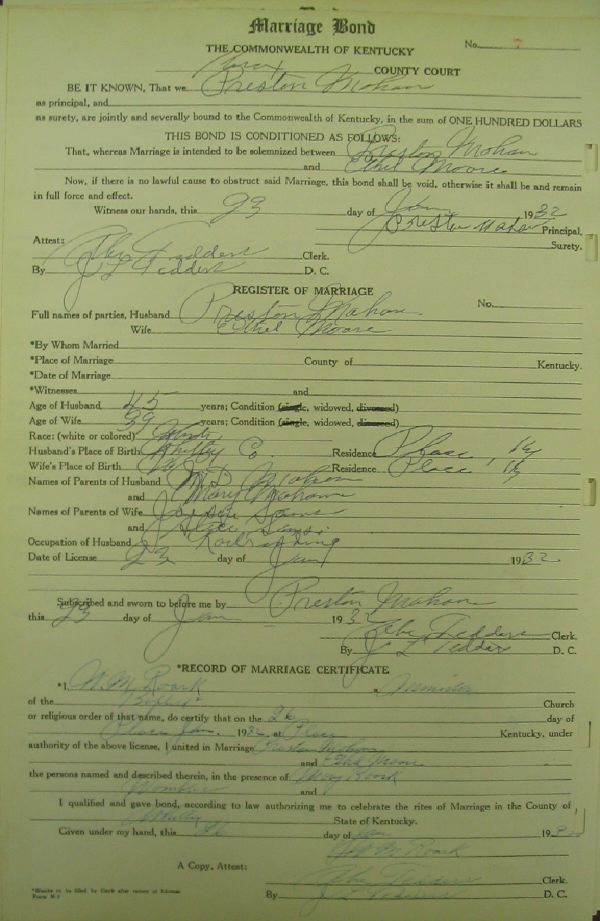 Marriage Bond
No. 7
THE COMMONWEALTH OF KENTUCKY
Knox COUNTY COURT
BE IT KNOWN, That we Preston Mahan
as principal, and
as surety, are jointly and severally bound to the Commonwealth of Kentucky, in the sum of ONE HUNDRED DOLLARS
THIS BOND IS CONDITIONED AS FOLLOWS:
That, whereas Marriage is intended to be solemnized between Preston Mahan
and Ethel Moore
Now, if there is no lawful cause to obstruct said Marriage, this bond shall be void, otherwise it shall be and remain
in full force and effect.
Witness our hands, this 23 day of Jan 1932
Preston Mahan Principal,
Surety.
Attest:
Tedders Clerk.
By J L Tedders D. C.
REGISTER OF MARRIAGE
No.
Full names of parties, Husband Preston Mahan
Wife Ethel Moore
*By Whom Married
*Place of Marriage County of Kentucky.
*Date of Marriage
*Witnesses and
Age of Husband 45 years; Condition (single, widowed, divorced)
Age of Wife 39 years; Condition (single, widowed, divorced)
Race: (white or colored) White
Husband's Place of Birth Whitley Co. Residence Place, Ky
Wife's Place of Birth Residence Place, Ky
Names of Parents of Husband Mahan
and Mary Mahan
Names of Parents of Wife
and
Occupation of Husband Railroading
Date of License 23 day of Jan 1932.
Subscribed and sworn to before me by Preston Mahan
this 23 day of Jan 1932
Tedders Clerk.
By J L Tedders D. C.
*RECORD OF MARRIAGE CERTIFICATE
*I, W. M. Roark a Minister
of the Baptist Church
or religious order of that name, do certify that on the day of
Jan. 1932 at Place Kentucky, under
authority of the above license, I united in Marriage Preston Mahan
and Ethel Moore
the persons named and described therein, in the presence of Mary Roark
and
I qualified and gave bond, according to law authorizing me to celebrate the rites of Marriage in the County of
Whitley State of Kentucky.
Given under my hand, this day of Jan 193
W M Roark
A Copy, Attest:
Tedders Clerk.
By J L Tedders D. C.